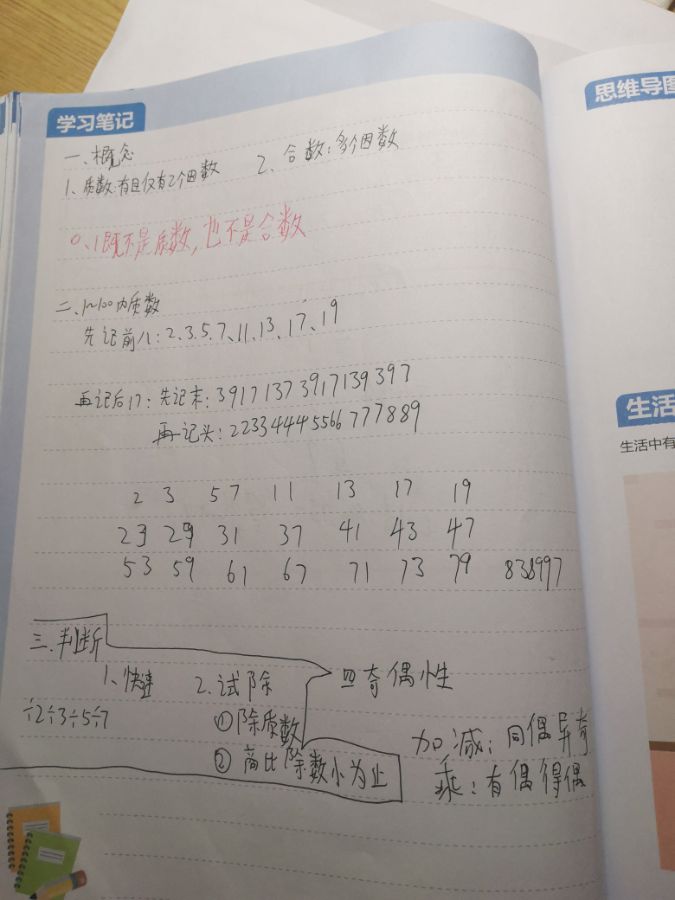 学习笔记
思维导图
一、概念
1、质数:有且仅有2个因数 2、合数:多个因数
0、1既不是质数,也不是合数
二、1~100内质数
先记前八:2、3、5、7、11、13、17、19
再记后17:先记末:39171373917139397
再记头:22334445566777889
生活
生活中有
2 3 5 7 11 13 17 19
23 29 31 37 41 43 47
53 59 61 67 71 73 79 838997
三、判断
1、快速 2、试除 四奇偶性
÷2÷3÷5÷7
①除质数
②商比除数小为止
加减:同偶异奇
乘:有偶得偶